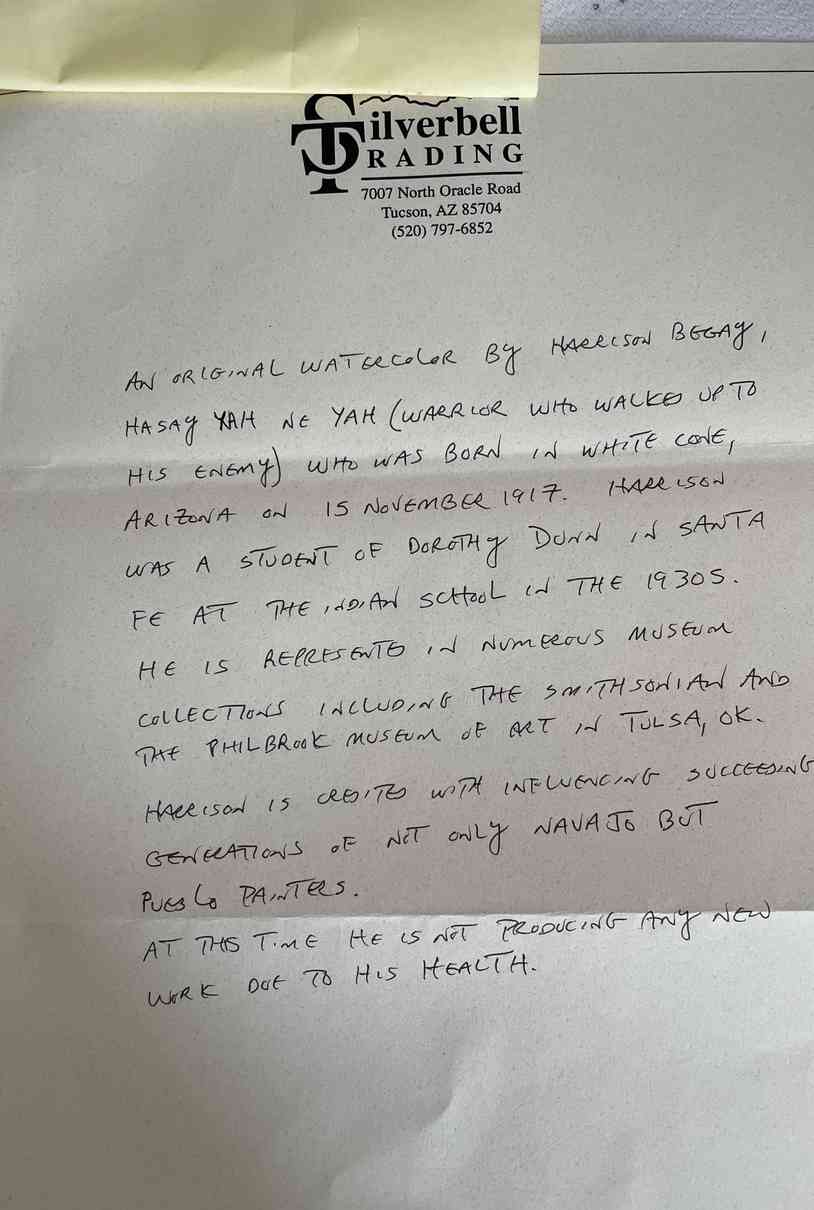 Silverbell
TRADING
7007 North Oracle Road
Tucson, AZ 85704
(520) 797-6852
AN ORIGINAL WATERCOLOR BY HARRISON BEGAY,
HASAY YAH NE YAH (WARRIOR WHO WALKED UP TO
HIS ENEMY) WHO WAS BORN IN WHITE CONE,
ARIZONA ON 15 NOVEMBER 1917. HARRISON
WAS A STUDENT OF DOROTHY DUNN IN SANTA
FE AT THE INDIAN SCHOOL IN THE 1930S.
HE IS REPRESENTED IN NUMEROUS MUSEUM
COLLECTIONS INCLUDING THE SMITHSONIAN AND
THE PHILBROOK MUSEUM OF ART IN TULSA, OK.
HARRISON IS CREDITED WITH INFLUENCING SUCCEEDING
GENERATIONS OF NOT ONLY NAVAJO BUT
PUEBLO PAINTERS.
AT THIS TIME HE IS NOT PRODUCING ANY NEW
WORK DUE TO HIS HEALTH.